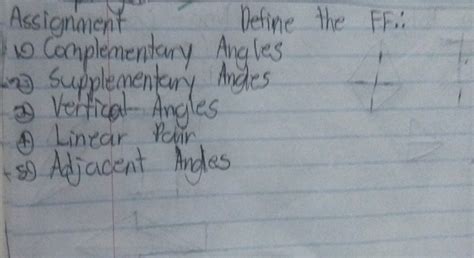 Assignment Define the FF.:
1) Complementary Angles
2) Supplementary Angles
3) Vertical Angles
4) Linear Pair
5) Adjacent Angles